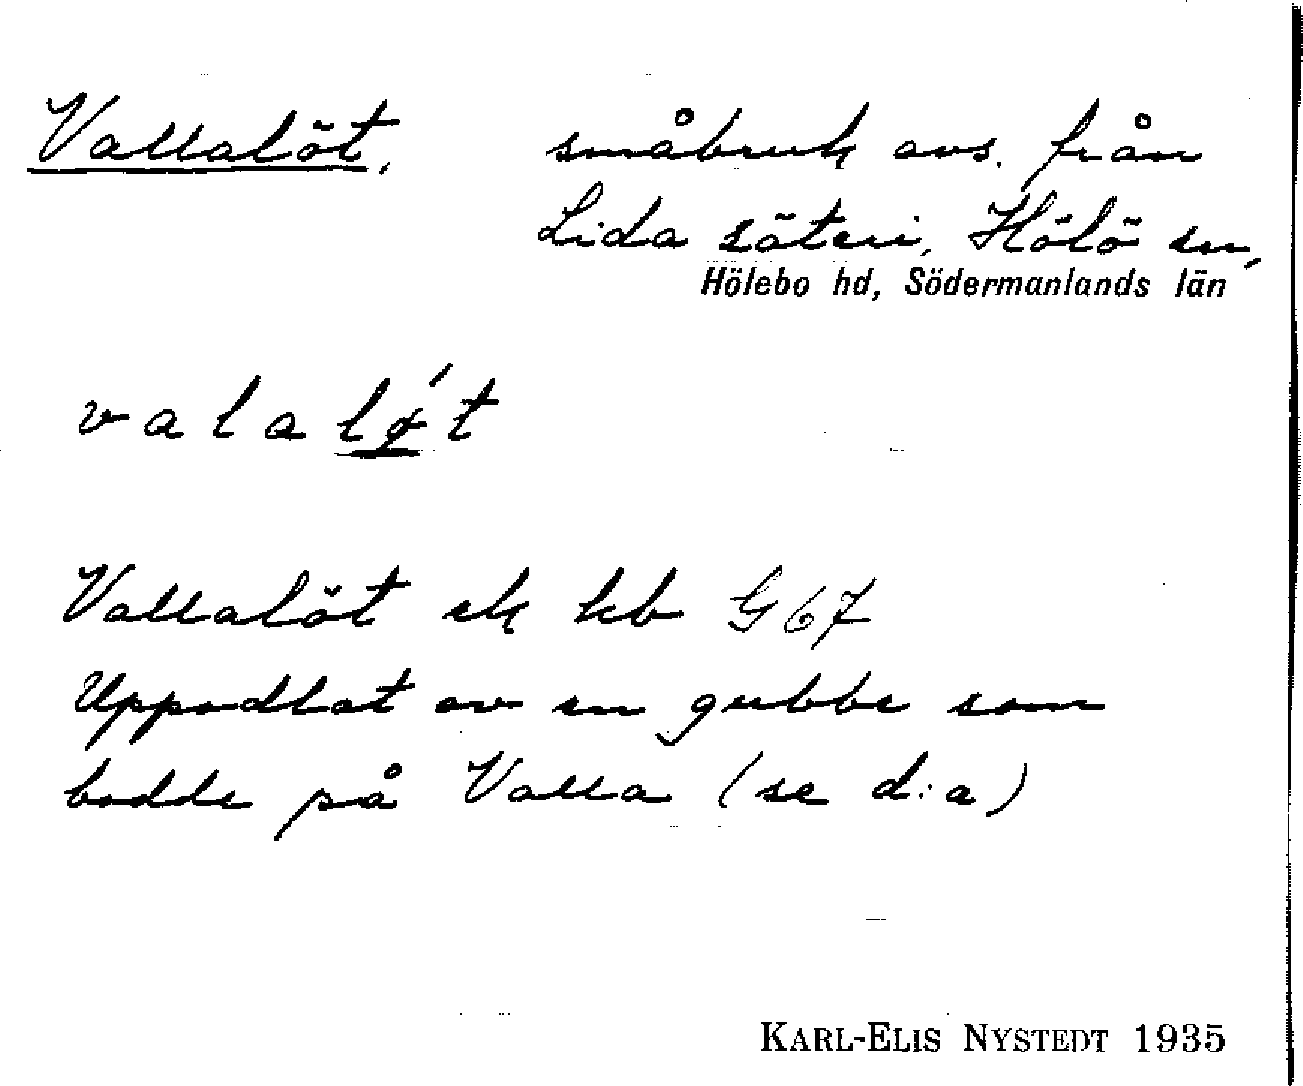 Vallalöt, småbruk avs. från
Lida säteri, Hölö sn,
Hölebo hd, Södermanlands län
valalǿt
Vallalöt ek kb G67
Uppodlat av en gubbe som
bodde på Valla (se d:a)
KARL-ELIS NYSTEDT 1935